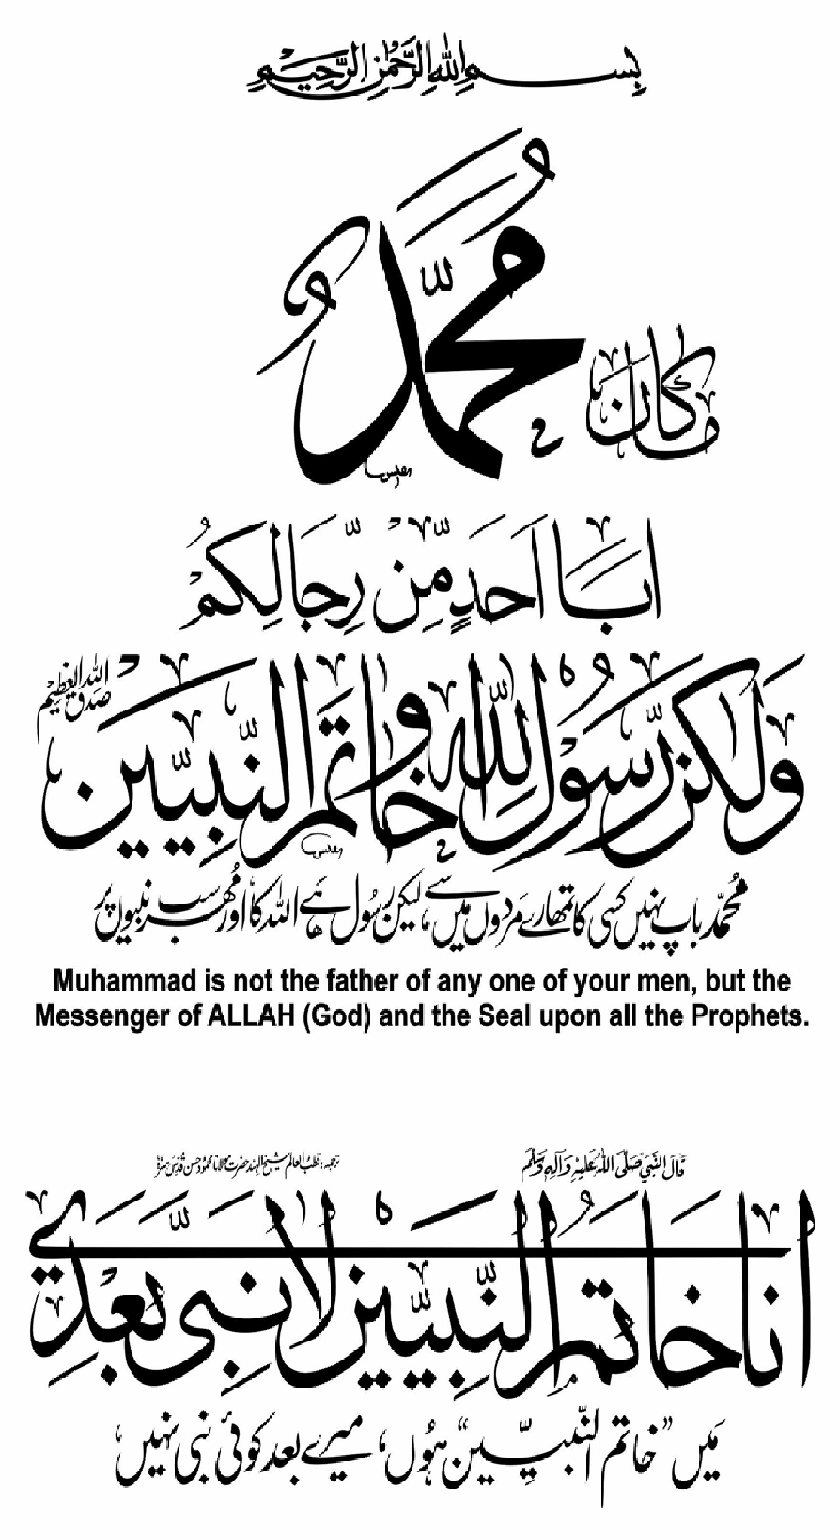 بِسْمِ اللهِ الرَّحْمٰنِ الرَّحِيْمِ
مَا كَانَ مُحَمَّدٌ
اَبَآ اَحَدٍ مِّنْ رِّجَالِكُمْ
وَلٰكِنْ رَّسُوْلَ اللهِ وَخَاتَمَ النَّبِيّٖنَ صدق الله العظیم
محمدؐ باپ نہیں کسی کا تمھارے مردوں میں سے، لیکن رسول ہے اللہ کا اور مُہر سب نبیوں پر
Muhammad is not the father of any one of your men, but the
Messenger of ALLAH (God) and the Seal upon all the Prophets.
قَالَ النَّبِيُّ صَلَّى اللهُ عَلَيْهِ وَآلِهٖ وَسَلَّم
ترجمہ: قطب العالم شیخ الہند حضرت مولانا محمود حسن
اَنَا خَاتَمُ النَّبِيّٖنَ لَا نَبِيَّ بَعْدِيْ
مَیں ”خاتم النَّبیّین“ ہُوں، میرے بعد کوئی نبی نہیں